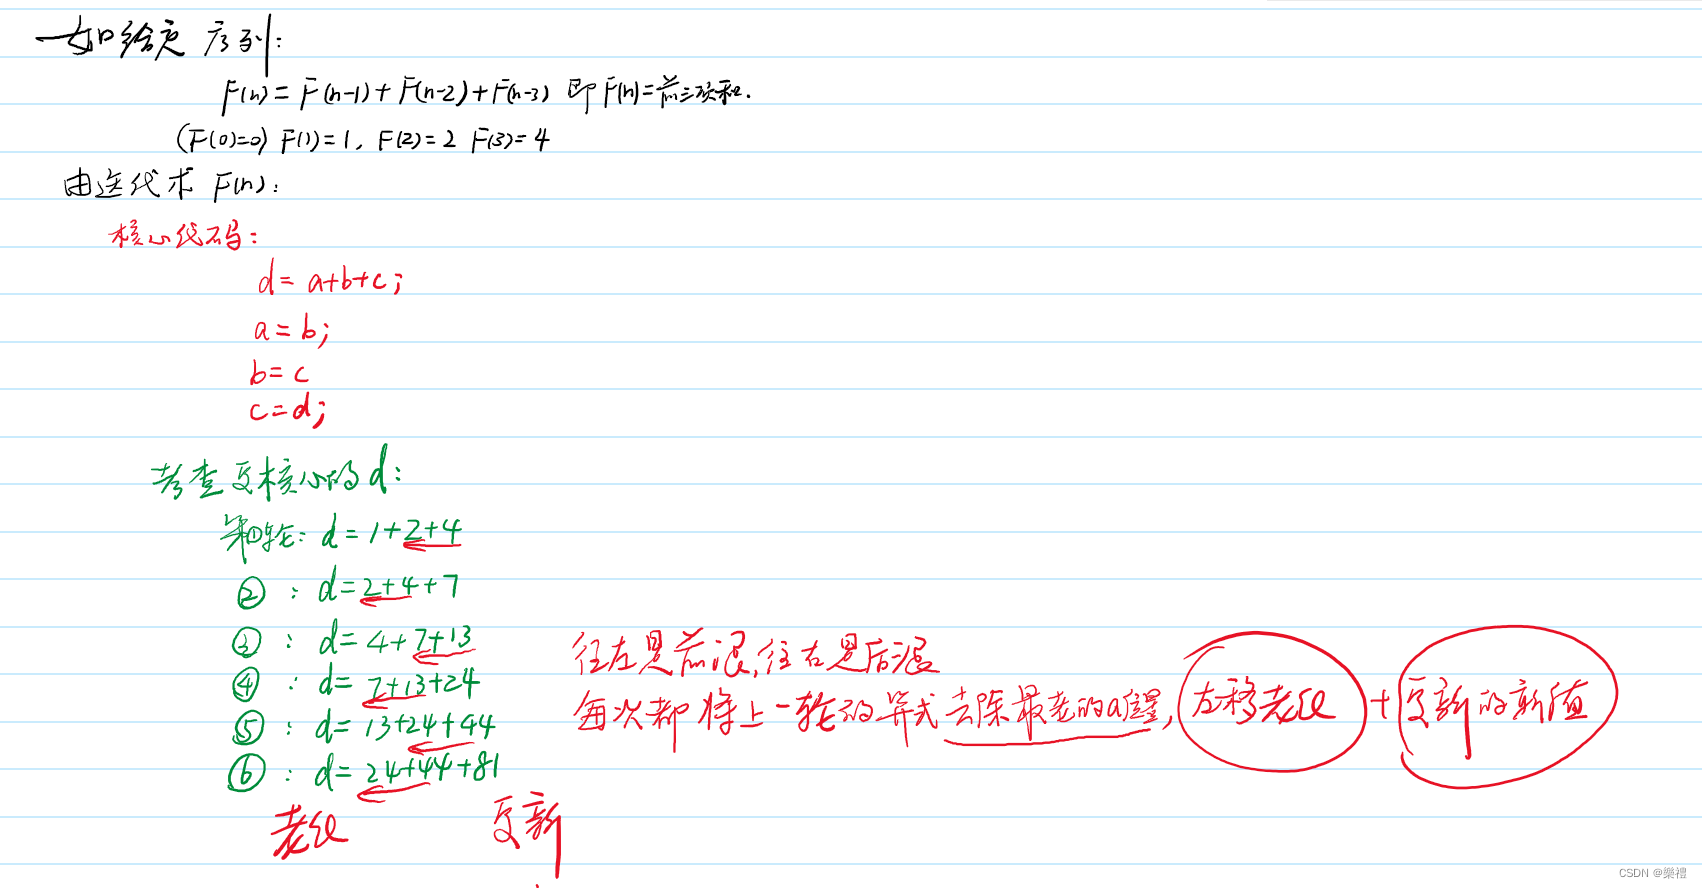 一如给定序列:
F(n)=F(n-1)+F(n-2)+F(n-3) 即F(n)=前三项和.
(F(0)=0) F(1)=1, F(2)=2 F(3)=4
由迭代求 F(n):
核心代码:
d=a+b+c;
a=b;
b=c
c=d;
考查更核心的d:
第①轮: d=1+2+4
② : d=2+4+7
③ : d=4+7+13
④ : d=7+13+24
⑤ : d=13+24+44
⑥ : d=24+44+81
往左是前滚,往右是后滚
每次都将上一轮的算式去除最老的a位置,左移老段+更新的新值
老段 更新
CSDN @樂禮